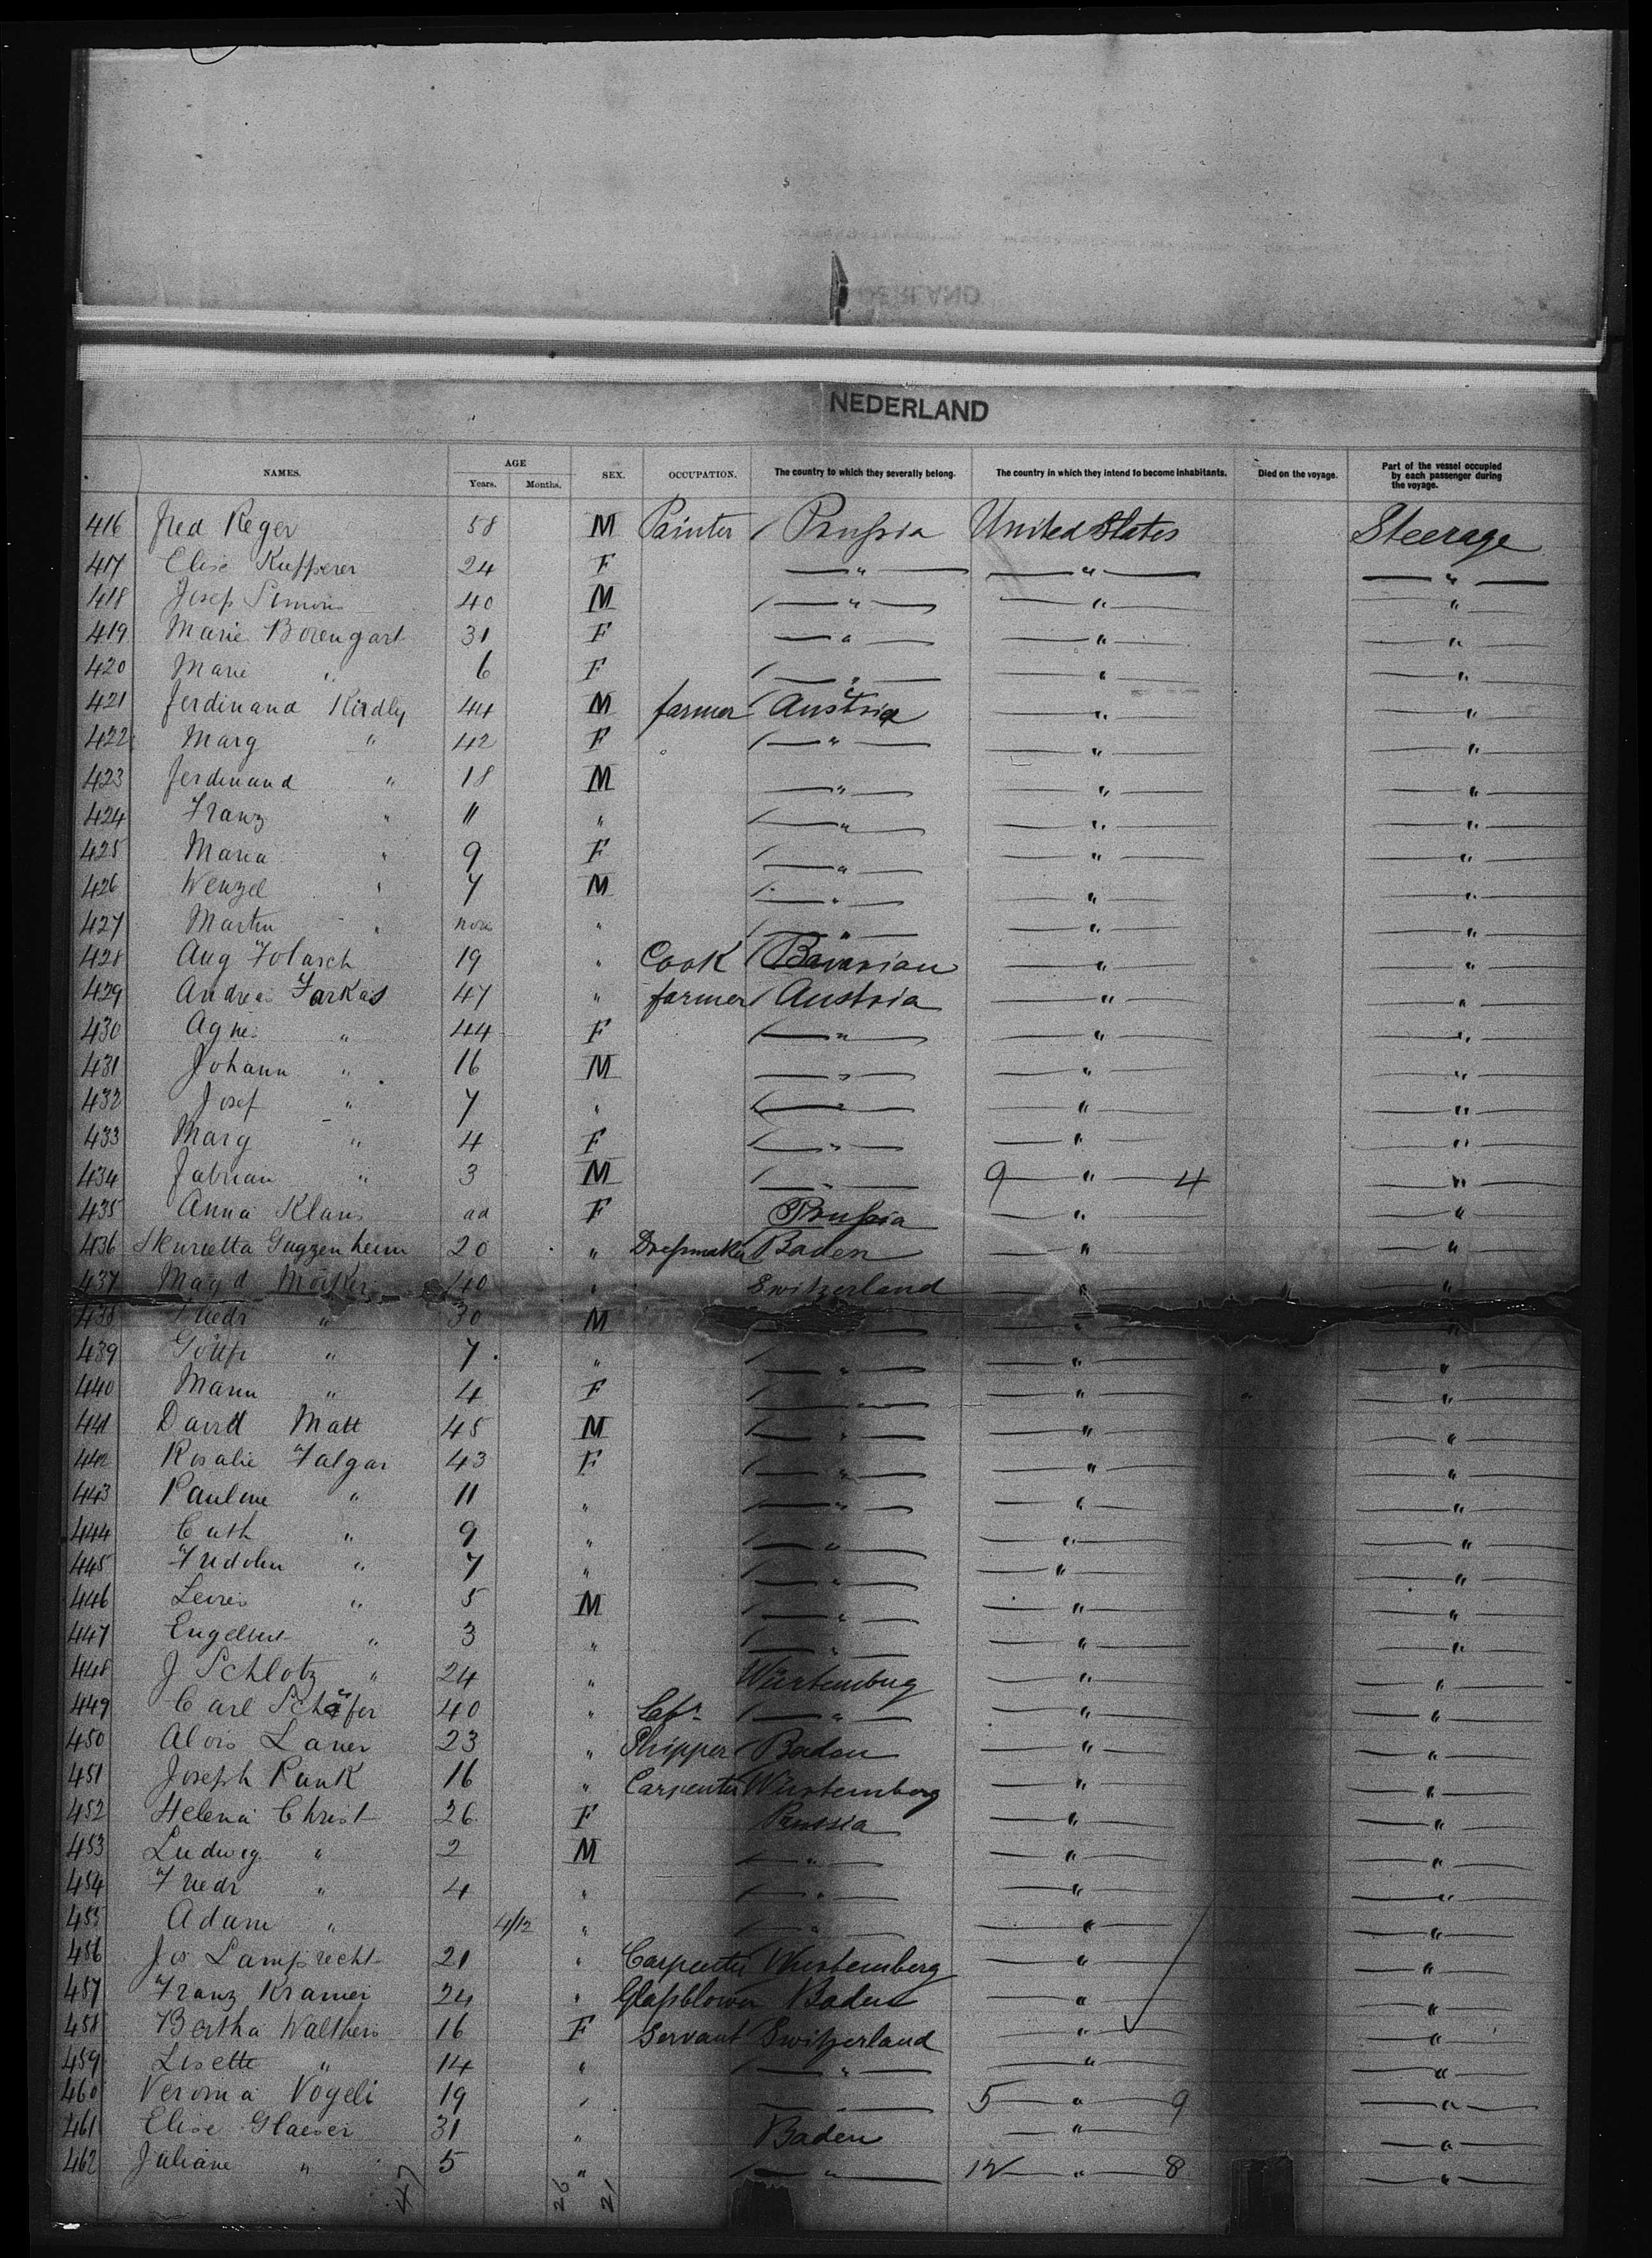 NEDERLAND
NAMES. AGE Years. Months. SEX. OCCUPATION. The country to which they severally belong. The country in which they intend to become inhabitants. Died on the voyage. Part of the vessel occupied by each passenger during the voyage.
416 Fred Reger 58 M Painter Prussia United States Steerage
417 Elise Kupferer 24 F " " "
418 Josep Simon 40 M " " "
419 Marie Borengart 31 F " " "
420 Marie " 6 F " " "
421 Ferdinand Kirdly 44 M farmer Austria " "
422 Marg " 42 F " " "
423 Ferdinand " 18 M " " "
424 Franz " 11 " " " "
425 Maria " 9 F " " "
426 Wenzel " 7 M " " "
427 Martin " " " " "
428 Aug Folasch 19 " Cook Bavarian " "
429 Andreas Farkas 47 " farmer Austria " "
430 Agnes " 44 F " " "
431 Johann " 16 M " " "
432 Josef " 7 " " " "
433 Marg " 4 F " " "
434 Fabrian " 3 M " 9 " 4 "
435 Anna Klaus ad F Prussia " "
436 Henrietta Guggenheim 20 " Dressmaker Baden " "
437 Magd 40 " Switzerland " "
438 Friedr " 30 M " "
439 " 7 " " " "
440 Maria " 4 F " " " "
441 David Matt 45 M " " "
442 Rosalie Falgar 43 F " " "
443 Pauline " 11 " " " "
444 Cath " 9 " " " "
445 Fridolin " 7 " " " "
446 " 5 M " " "
447 Engelbert " 3 " " " "
448 J Schlotz " 24 " Würtemburg " "
449 Carl Schäfer 40 " Labr " " "
450 Alois Laner 23 " Shipper Baden " "
451 Joseph Runk 16 " Carpenter Würtemberg " "
452 Helena Christ 26 F Prussia " "
453 Ludwig " 2 M " " "
454 Friedr " 4 " " " "
455 Adam " 4/12 " " " "
456 Jos Lamprecht 21 " Carpenter Wurtemberg " "
457 Franz Kramer 24 " Glassblower Baden " "
458 Bertha Walthers 16 F Servant Switzerland " "
459 Lisette " 14 " " " "
460 Verona Vogeli 19 " " 5 " 9 "
461 Elise Glaeser 31 " Baden " "
462 Juliane " 5 " " 12 " 8 "
47 26 21